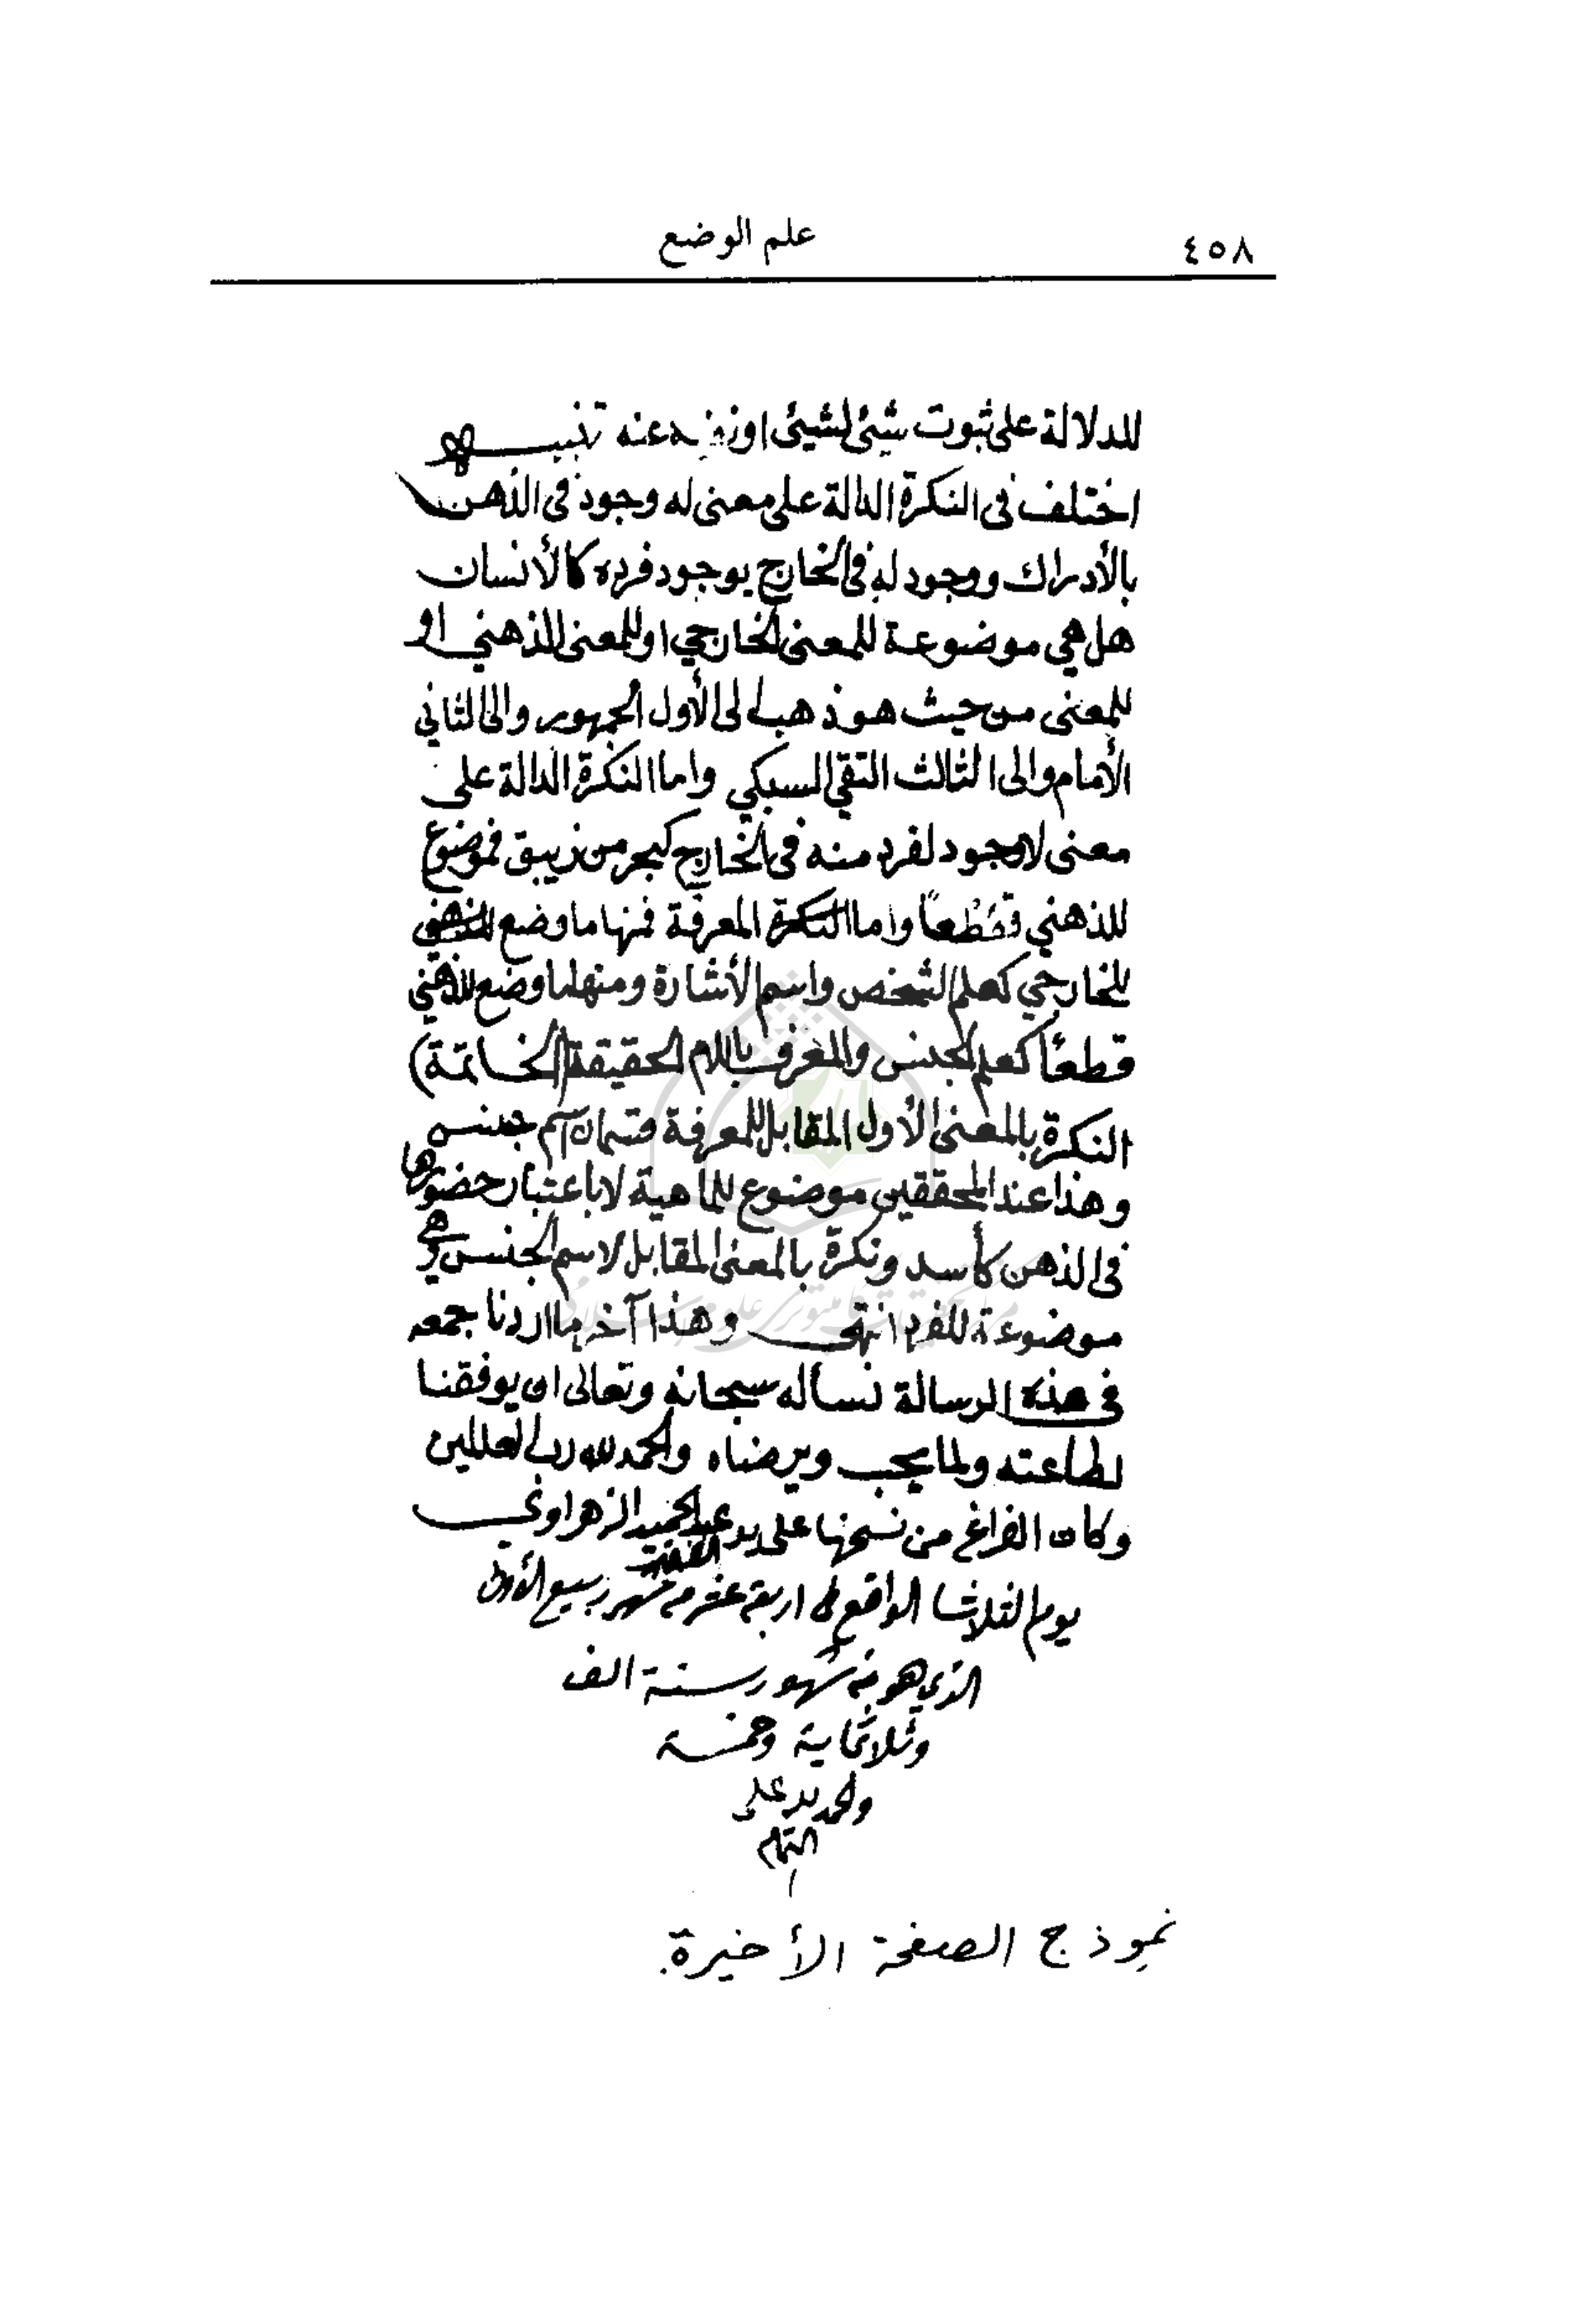 ٤٥٨
علم الوضع
للدلالة على ثبوت شيئ لشيئ او نفيه عنه تنبيـــه
اختلف في النكرة الدالة على معنى له وجود في الذهن
بالأدراك ووجود له في الخارج بوجود فرده كالأنسان
هل هي موضوعة للمعنى الخارجي او للمعنى الذهني او
للمعنى من حيث هو ذهب الى الأول الجمهور والى الثاني
الأمام والى الثالث التقي السبكي واما النكرة الدالة على
معنى لا وجود لفرد منه في الخارج كبحر من زيبق فموضوع
للذهني قطعاً واما المعرفة فمنها ما وضع
للخارجي كعلم الشخص واسم الأشارة ومنها ما وضع للذهني
قطعاً كعلم الجنس والمعرف باللام الحقيقة (الخاتمة)
النكرة بالمعنى الأول المقابل للمعرفة قسمان اسم جنس
وهذا عند المحققين موضوع للماهية لا باعتبار حضورها
في الذهن كأسد ونكرة بالمعنى المقابل لاسم الجنس وهي
موضوعة للفرد انتهى وهذا آخر ما اردنا جمعه
في هذه الرسالة نسأله سبحانه وتعالى ان يوفقنا
لطاعته ولما يحب ويرضاه والحمد لله رب العالمين
وكان الفراغ من نسخها على يد عبد الحميد الزهراوي
يوم الثلاثا الواقع في اربعة عشر من شهر ربيع الأول
الذي هو من شهور سنة الف
وثلاثماية وخمسة
والحمد لله على
التمام
نموذج الصفحة الأخيرة.